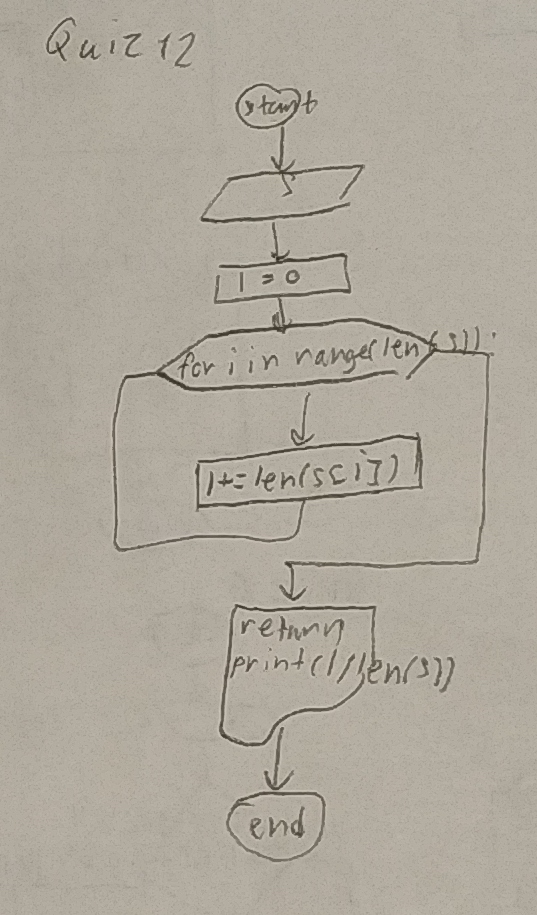 Quiz 12
start
s
l = 0
for i in range(len(s)):
l+=len(s[i])
return
print(l/len(s))
end